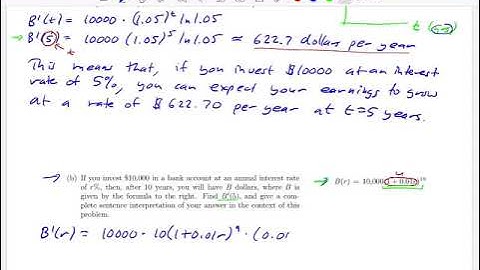 B'(t) = 10000 · (1.05)^t ln 1.05
B'(5) = 10000 (1.05)^5 ln 1.05 ≈ 622.7 dollars per year
This means that, if you invest $10000 at an interest
rate of 5%, you can expect your earnings to grow
at a rate of $622.70 per year at t=5 years.
(b) If you invest $10,000 in a bank account at an annual interest rate
of r%, then, after 10 years, you will have B dollars, where B is
given by the formula to the right. Find B'(5), and give a
complete sentence interpretation of your answer in the context of this
problem.
B(r) = 10,000(1 + 0.01r)^10
B'(r) = 10000 · 10(1+0.01r)^9 · (0.01